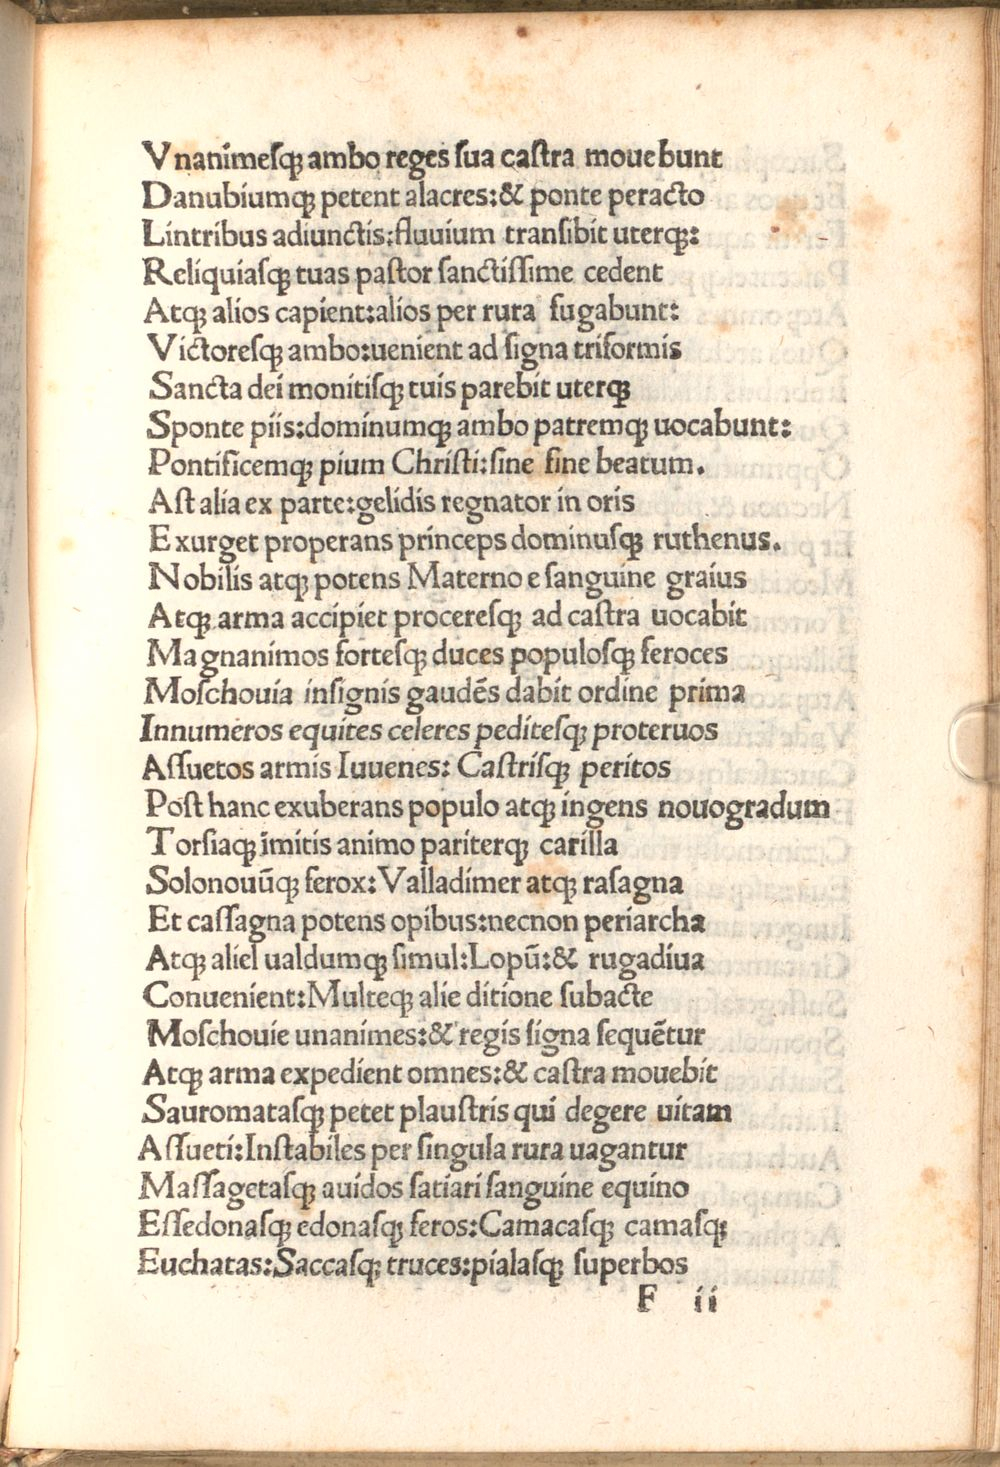 Vnanimesqꝫ ambo reges sua castra mouebunt
Danubiumqꝫ petent alacres:& ponte peracto
Lintribus adiunctis:fluuium transibit uterqꝫ:
Reliquiasqꝫ tuas pastor sanctissime cedent
Atqꝫ alios capient:alios per rura fugabunt:
Victoresqꝫ ambo:uenient ad signa triformis
Sancta dei monitisqꝫ tuis parebit uterqꝫ
Sponte piis:dominumqꝫ ambo patremqꝫ uocabunt:
Pontificemqꝫ pium Christi:sine fine beatum.
Ast alia ex parte:gelidis regnator in oris
Exurget properans princeps dominusqꝫ ruthenus.
Nobilis atqꝫ potens Materno e sanguine graius
Atqꝫ arma accipiet proceresqꝫ ad castra uocabit
Magnanimos fortesqꝫ duces populosqꝫ feroces
Moschouia insignis gaudēs dabit ordine prima
Innumeros equites celeres peditesqꝫ proteruos
Assuetos armis Iuuenes: Castrisqꝫ peritos
Post hanc exuberans populo atqꝫ ingens nouogradum
Torsiaqꝫ īmitis animo pariterqꝫ carilla
Solonouūqꝫ ferox:Valladimer atqꝫ rasagna
Et cassagna potens opibus:necnon periarcha
Atqꝫ aliel ualdumqꝫ simul:Lopū:& rugadiua
Conuenient:Multeqꝫ alie ditione subacte
Moschouie unanimes:& regis signa sequētur
Atqꝫ arma expedient omnes:& castra mouebit
Sauromatasqꝫ petet plaustris qui degere uitam
Assueti:Instabiles per singula rura uagantur
Massagetasqꝫ auidos satiari sanguine equino
Essedonasqꝫ edonasqꝫ feros:Camacasqꝫ camasqꝫ
Euchatas:Saccasqꝫ truces:pialasqꝫ superbos
F ii